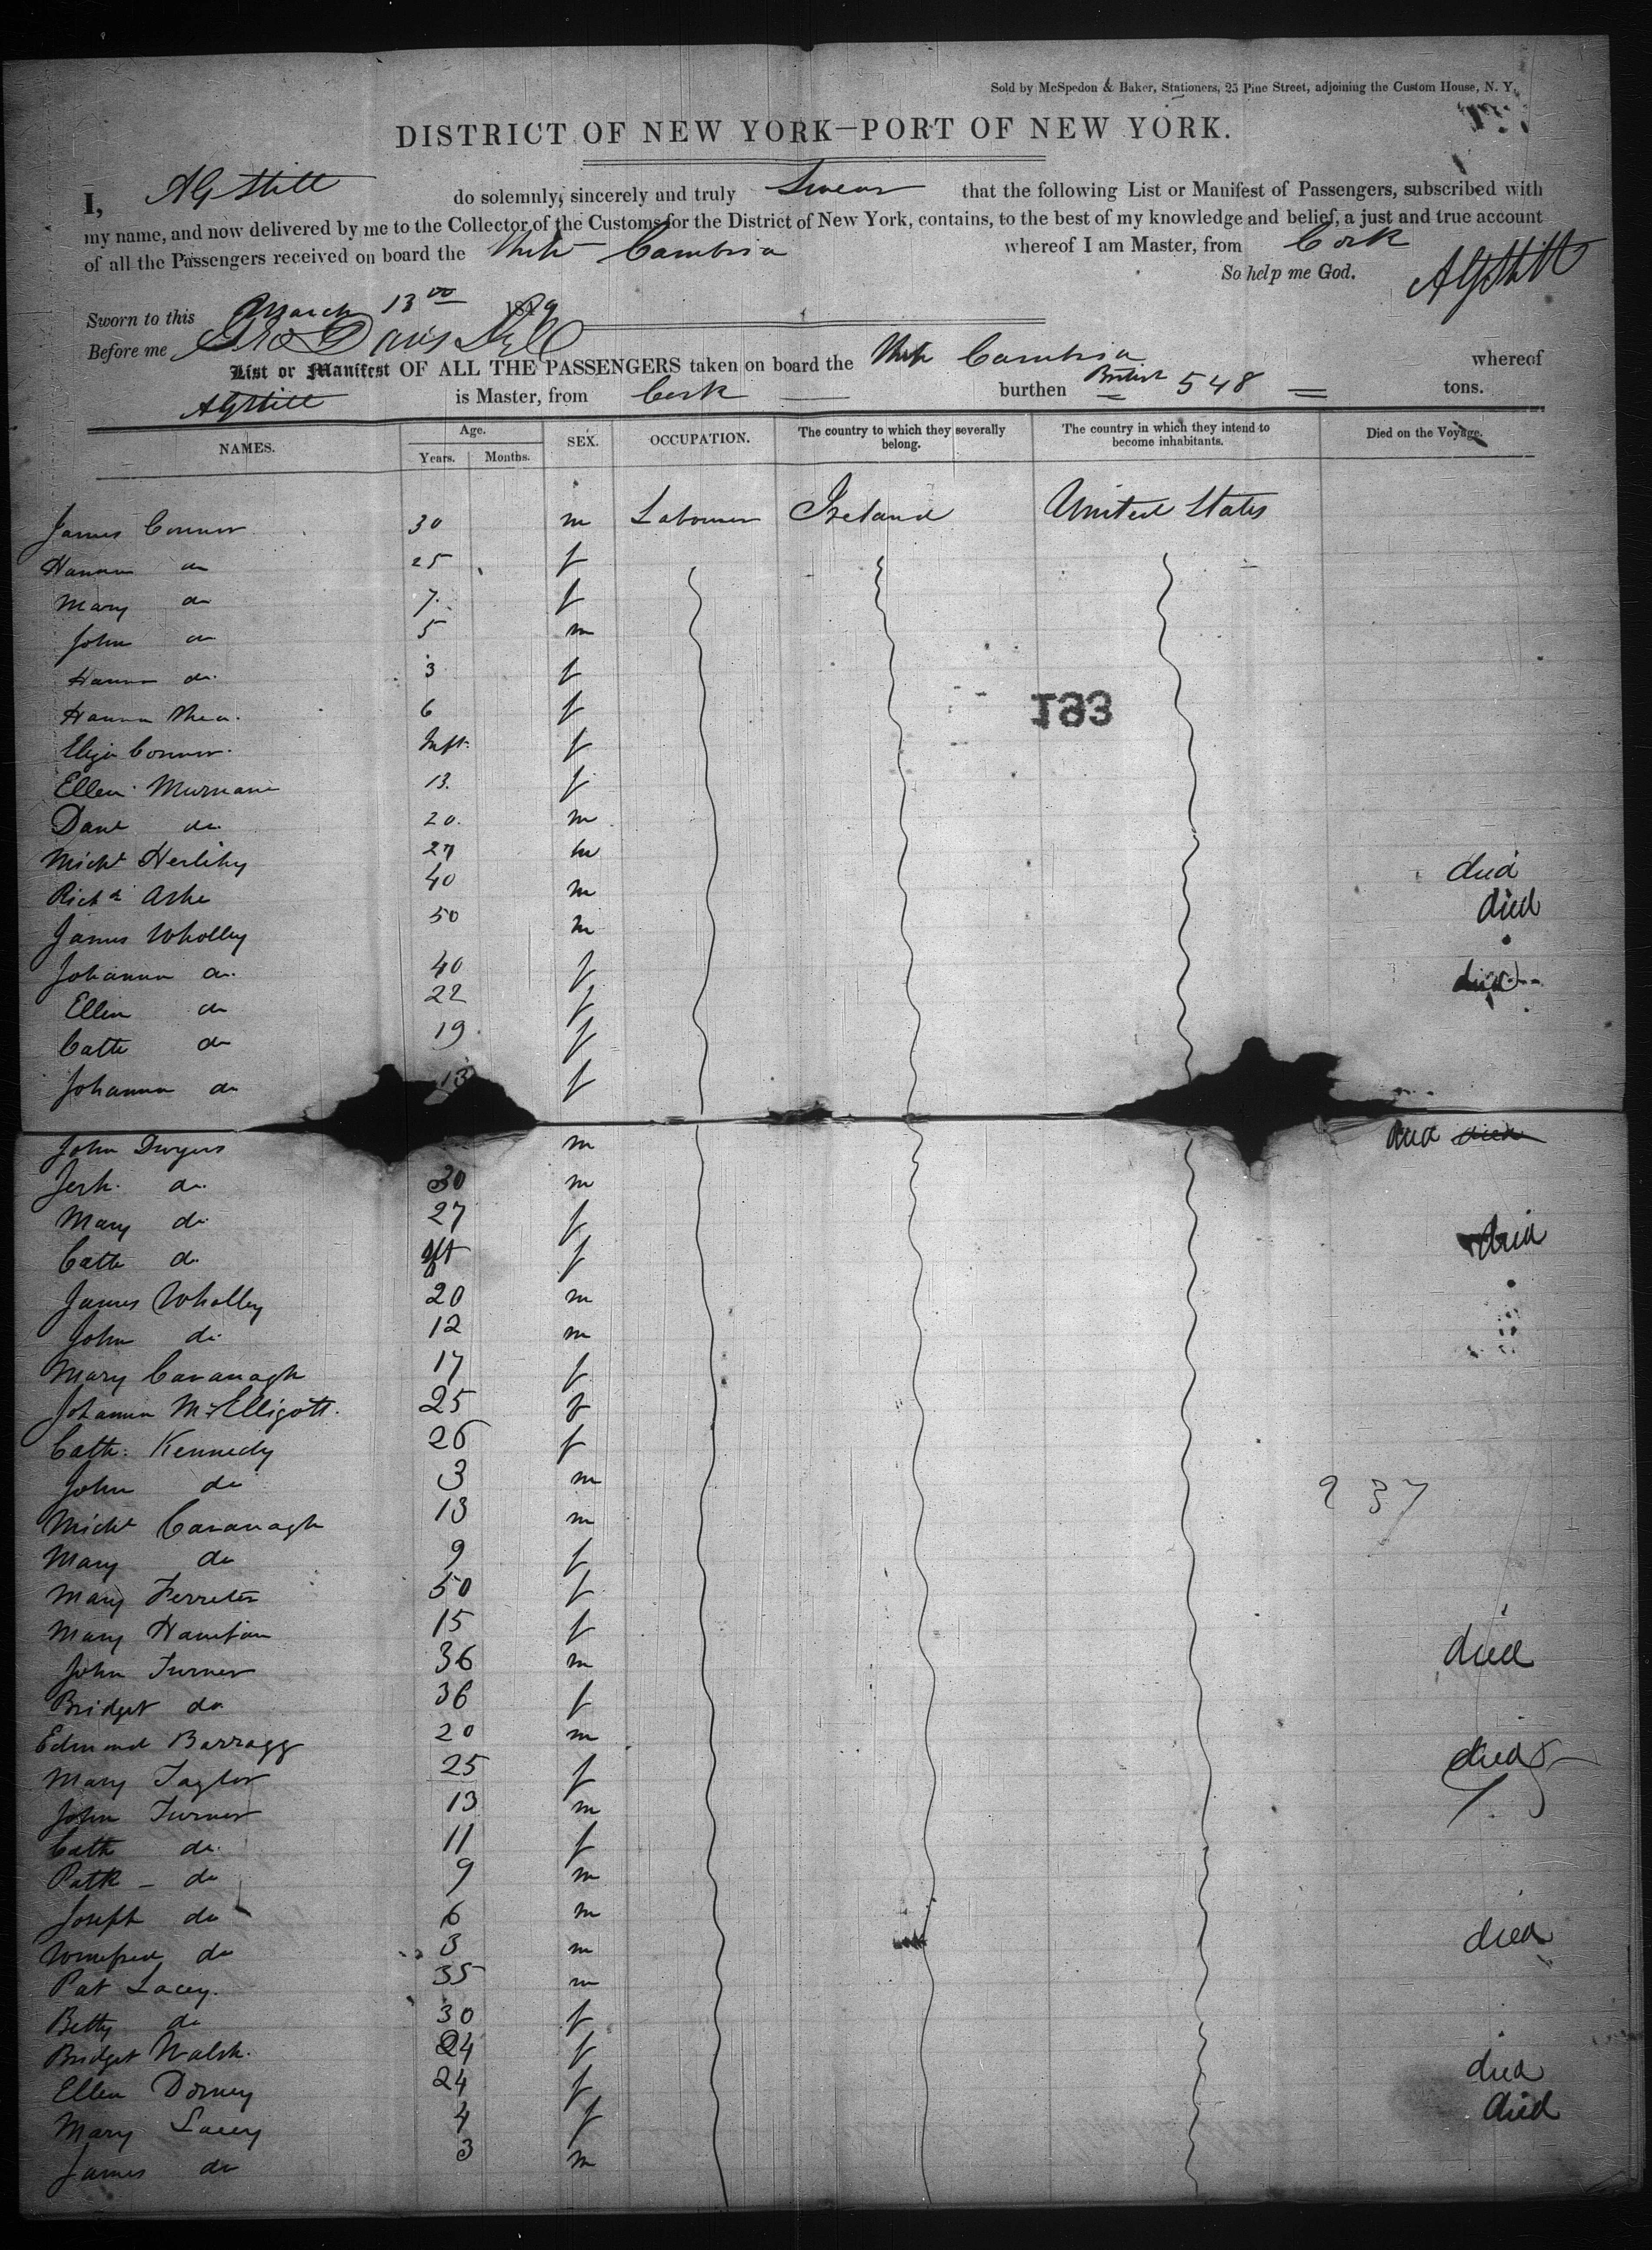 Sold by McSpedon & Baker, Stationers, 25 Pine Street, adjoining the Custom House, N. Y.
DISTRICT OF NEW YORK—PORT OF NEW YORK.
I, do solemnly, sincerely and truly Swear that the following List or Manifest of Passengers, subscribed with
my name, and now delivered by me to the Collector of the Customs for the District of New York, contains, to the best of my knowledge and belief, a just and true account
of all the Passengers received on board the Ship Cambria whereof I am Master, from Cork
So help me God.
Sworn to this March 13 1849
Before me
List or Manifest OF ALL THE PASSENGERS taken on board the Ship Cambria whereof
is Master, from Cork burthen British 548 tons.
NAMES. Age. Years. Months. SEX. OCCUPATION. The country to which they severally belong. The country in which they intend to become inhabitants. Died on the Voyage.
James Connor 30 m Labourer Ireland United States
Hanna do 25 f
Mary do 7 f
John do 5 m
Hanna do 3 f
Hanna Shea 6 f
Eliza Connor Inft f
193
Ellen Murnane 13 f
Danl do 20 m
Michl Herlihy 27 m died
Richd Ashe 40 m died
James Wholley 50 m
Johanna do 40 f died
Ellen do 22 f
Cath do 19 f
Johanna do 13 f
John Dwyers m died died
Jerh. do 30 m
Mary do 27 f died
Cath do Inft f
James Wholley 20 m
John do 12 m
Mary Cavanagh 17 f
Johanna McElligott 25 f
Cath: Kennedy 26 f
John do 3 m
237
Michl Cavanagh 13 m
Mary do 9 f
Mary Ferreter 50 f
Mary 15 f
John Turner 36 m died
Bridget do 36 f
Edmond Barragg 20 m
Mary Taylor 25 f died
John Turner 13 m
Cath do 11 f
Patk - do 9 m
Joseph do 6 m
Winefred do 3 m died
Pat Lacey 35 m
Betty do 30 f
Bridget Walsh 24 f
Ellen Dorney 24 f died
Mary Lacey 4 f died
James do 3 m